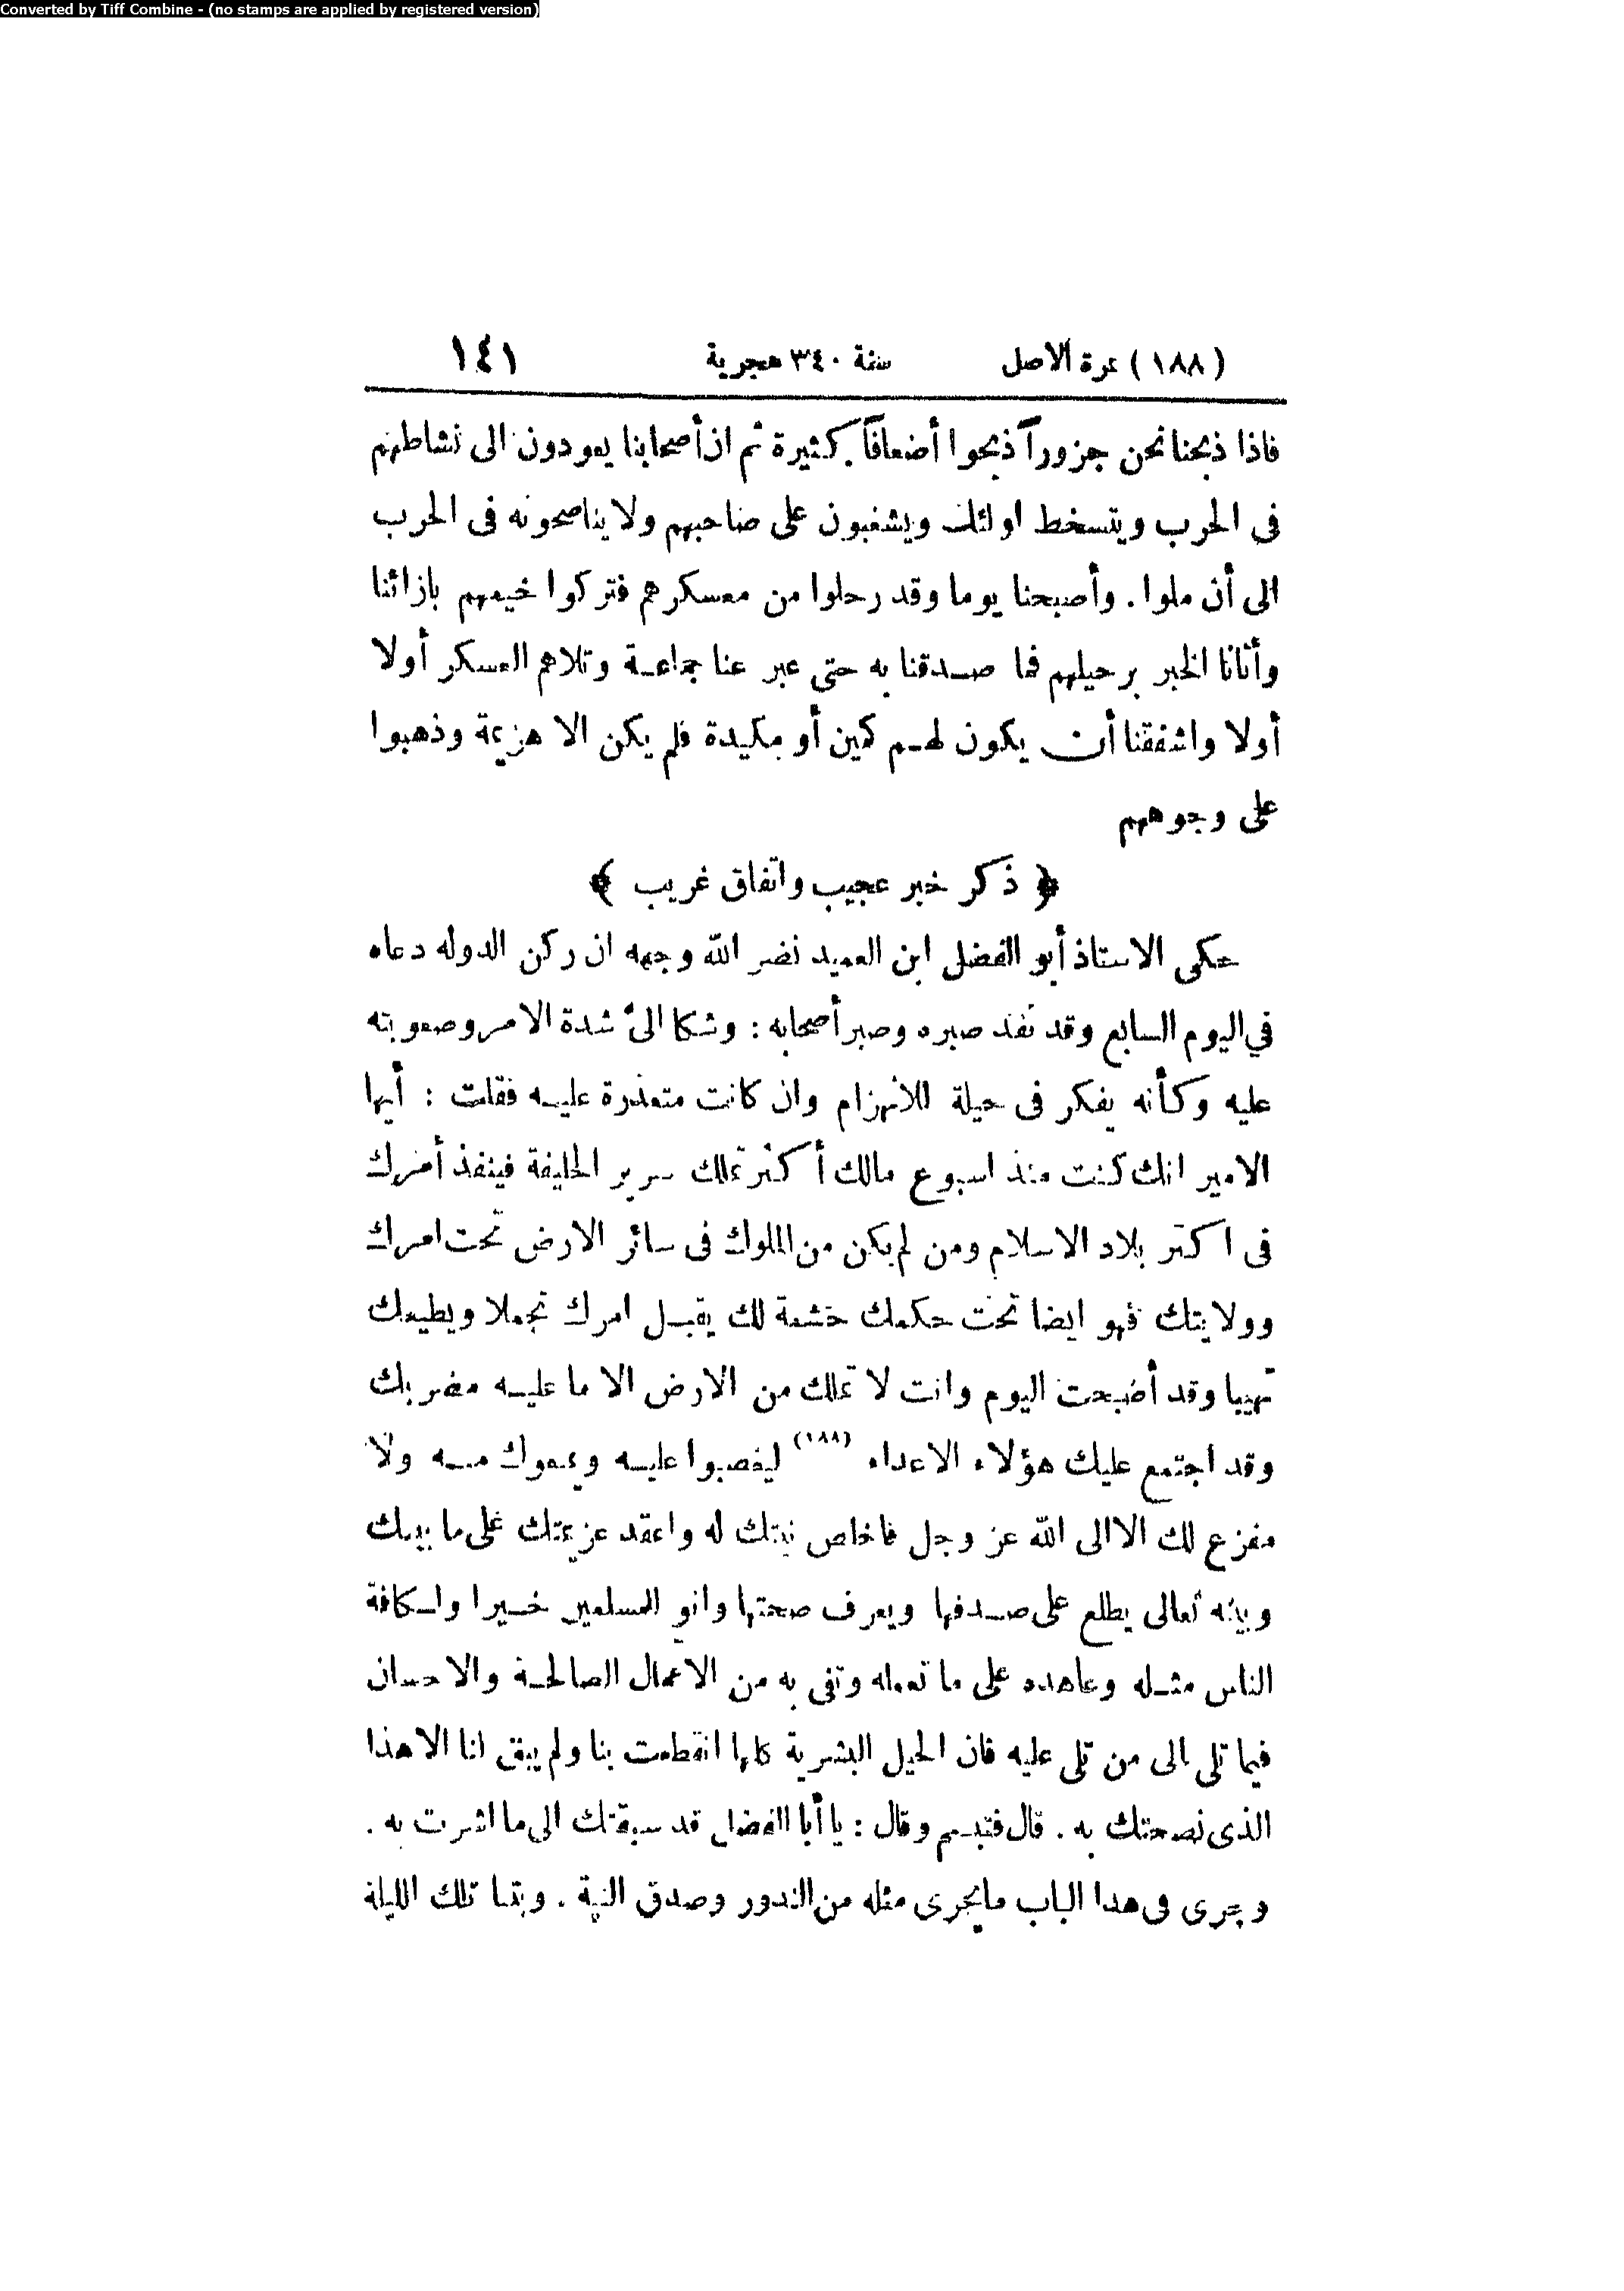 Converted by Tiff Combine - (no stamps are applied by registered version)
(١٨٨) نمرة الاصل سنة ٣٤٠ هجرية ١٤١
فاذا ذبحنا نحن جزوراً ذبحوا أضعافاً كثيرة ثم ان أصحابنا يعودون الى نشاطهم
فى الحرب ويتسخط اولئك ويشغبون على صاحبهم ولا يناصحونه فى الحرب
الى أن ملوا . وأصبحنا يوما وقد رحلوا من معسكرهم فتركوا خيمهم بازائنا
وأتانا الخبر برحيلهم فما صدقنا به حتى عبر عنا جماعة وتلاهم العسكر أولا
أولا واشفقنا أن يكون لهم كمين أو مكيدة فلم يكن الا هزيمة وذهبوا
على وجوههم
﴿ ذكر خبر عجيب واتفاق غريب ﴾
حكى الاستاذ أبو الفضل ابن العميد نضر الله وجهه ان ركن الدوله دعاه
في اليوم السابع وقد نفد صبره وصبر أصحابه : وشكا الىّ شدة الامر وصعوبته
عليه وكأنه يفكر فى حيلة للانهزام وان كانت متعذرة عليه فقلت : أيها
الامير انك كنت منذ اسبوع مالك أكثر تملك سرير الخليفة فينفذ أمرك
فى اكثر بلاد الاسلام ومن لم يكن من الملوك فى سائر الارض تحت امرك
وولايتك فهو ايضا تحت حكمك حشمة لك يقبل امرك تجملا ويطيعك
تهيبا وقد أصبحت اليوم وانت لا تملك من الارض الا ما عليه مضربك
وقد اجتمع عليك هؤلاء الاعداء (١٨٨) ليغصبوا عليه ويمنعوك منه ولا
مفزع لك الا الى الله عز وجل فاخلص نيتك له واعقد عزيمتك على ما بينك
وبينه تعالى يطلع على صدقها ويعرف صحتها وانو للمسلمين خيرا ولكافة
الناس مثله وعاهده على ما تعمله وتفى به من الاعمال الصالحة والاحسان
فيما تلى الى من تلى عليه فان الحيل البشرية كلها انقطعت بنا ولم يبق لنا الا هذا
الذى نصحتك به . قال فتبسم وقال : يا أبا الفضل قد سبقتك الى ما اشرت به .
وجرى فى هذا الباب ما يجرى مثله من النذور وصدق النية . وبتنا تلك الليلة